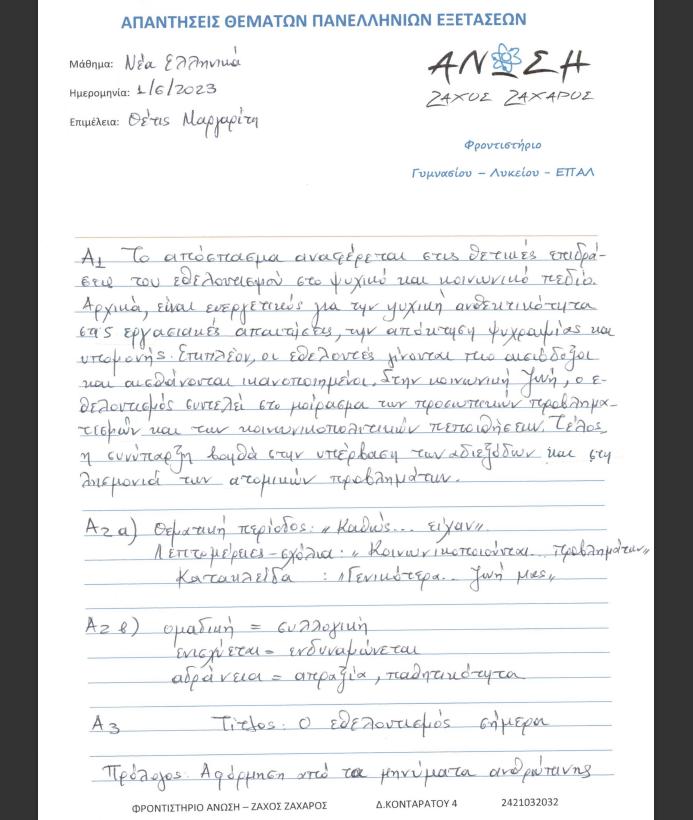 ΑΠΑΝΤΗΣΕΙΣ ΘΕΜΑΤΩΝ ΠΑΝΕΛΛΗΝΙΩΝ ΕΞΕΤΑΣΕΩΝ
Μάθημα: Νέα Ελληνικά
Ημερομηνία: 1/6/2023
Επιμέλεια: Θέτις Μαργαρίτη
ΑΝΩΣΗ
ΖΑΧΟΣ ΖΑΧΑΡΟΣ
Φροντιστήριο
Γυμνασίου – Λυκείου – ΕΠΑΛ
Α1 Το απόσπασμα αναφέρεται στις θετικές επιδρά-
σεις του εθελοντισμού στο ψυχικό και κοινωνικό πεδίο.
Αρχικά, είναι ευεργετικός για την ψυχική ανθεκτικότητα
στις εργασιακές απαιτήσεις, την απόκτηση ψυχραιμίας και
υπομονής. Επιπλέον, οι εθελοντές γίνονται πιο αισιόδοξοι
και αισθάνονται ικανοποιημένοι. Στην κοινωνική ζωή, ο ε-
θελοντισμός συντελεί στο μοίρασμα των προσωπικών προβλημα-
τισμών και των κοινωνικοπολιτικών πεποιθήσεων. Τέλος,
η συνύπαρξη βοηθά στην υπέρβαση των αδιεξόδων και στη
λησμονιά των ατομικών προβλημάτων.
Α2 α) Θεματική περίοδος: «Καθώς... είχαν».
Λεπτομέρειες - σχόλια: «Κοινωνικοποιούνται... προβλημάτων»
Κατακλείδα : «Γενικότερα... ζωή μας»
Α2 β) ομαδική = συλλογική
ενισχύεται = ενδυναμώνεται
αδράνεια = απραξία, παθητικότητα
Α3 Τίτλος: Ο εθελοντισμός σήμερα
Πρόλογος: Αφόρμηση από τα μηνύματα ανθρώπινης
ΦΡΟΝΤΙΣΤΗΡΙΟ ΑΝΩΣΗ – ΖΑΧΟΣ ΖΑΧΑΡΟΣ Δ.ΚΟΝΤΑΡΑΤΟΥ 4 2421032032